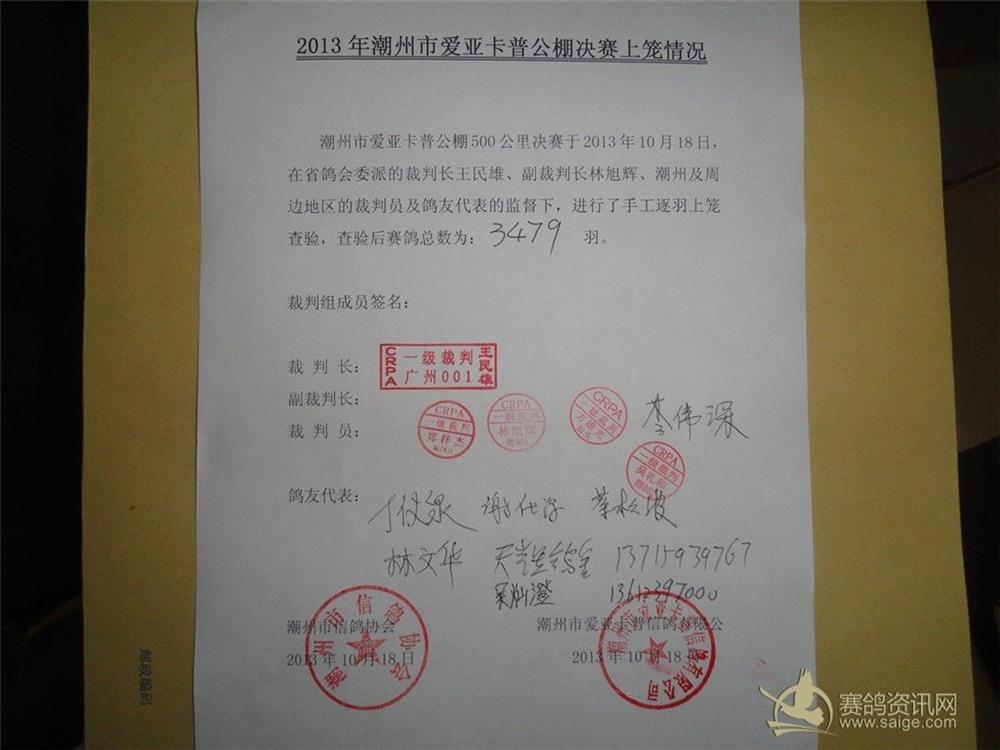 2013年潮州市爱亚卡普公棚决赛上笼情况
潮州市爱亚卡普公棚500公里决赛于2013年10月18日,
在省鸽会委派的裁判长王民雄、副裁判长林旭辉、潮州及周
边地区的裁判员及鸽友代表的监督下，进行了手工逐羽上笼
查验，查验后赛鸽总数为：3479 羽。
裁判组成员签名：
裁 判 长：
CRPA 一级裁判 广州001 王民雄
副裁判长：
裁 判 员：
CRPA 一级裁判 郑梓杰
CRPA 一级裁判 林旭辉 潮001
CRPA 二级裁判
伟深
CRPA 二级裁判 吴礼和
鸽友代表：
谢仕
林文华 13715939767
澄
潮州市信鸽协会 潮州市爱亚卡普信鸽有限公
2013年10月18日 2013年10月18日
潮州市信鸽协会
潮州市爱亚卡普信鸽有限公司
邮政编码
赛鸽资讯网
www.saige.com